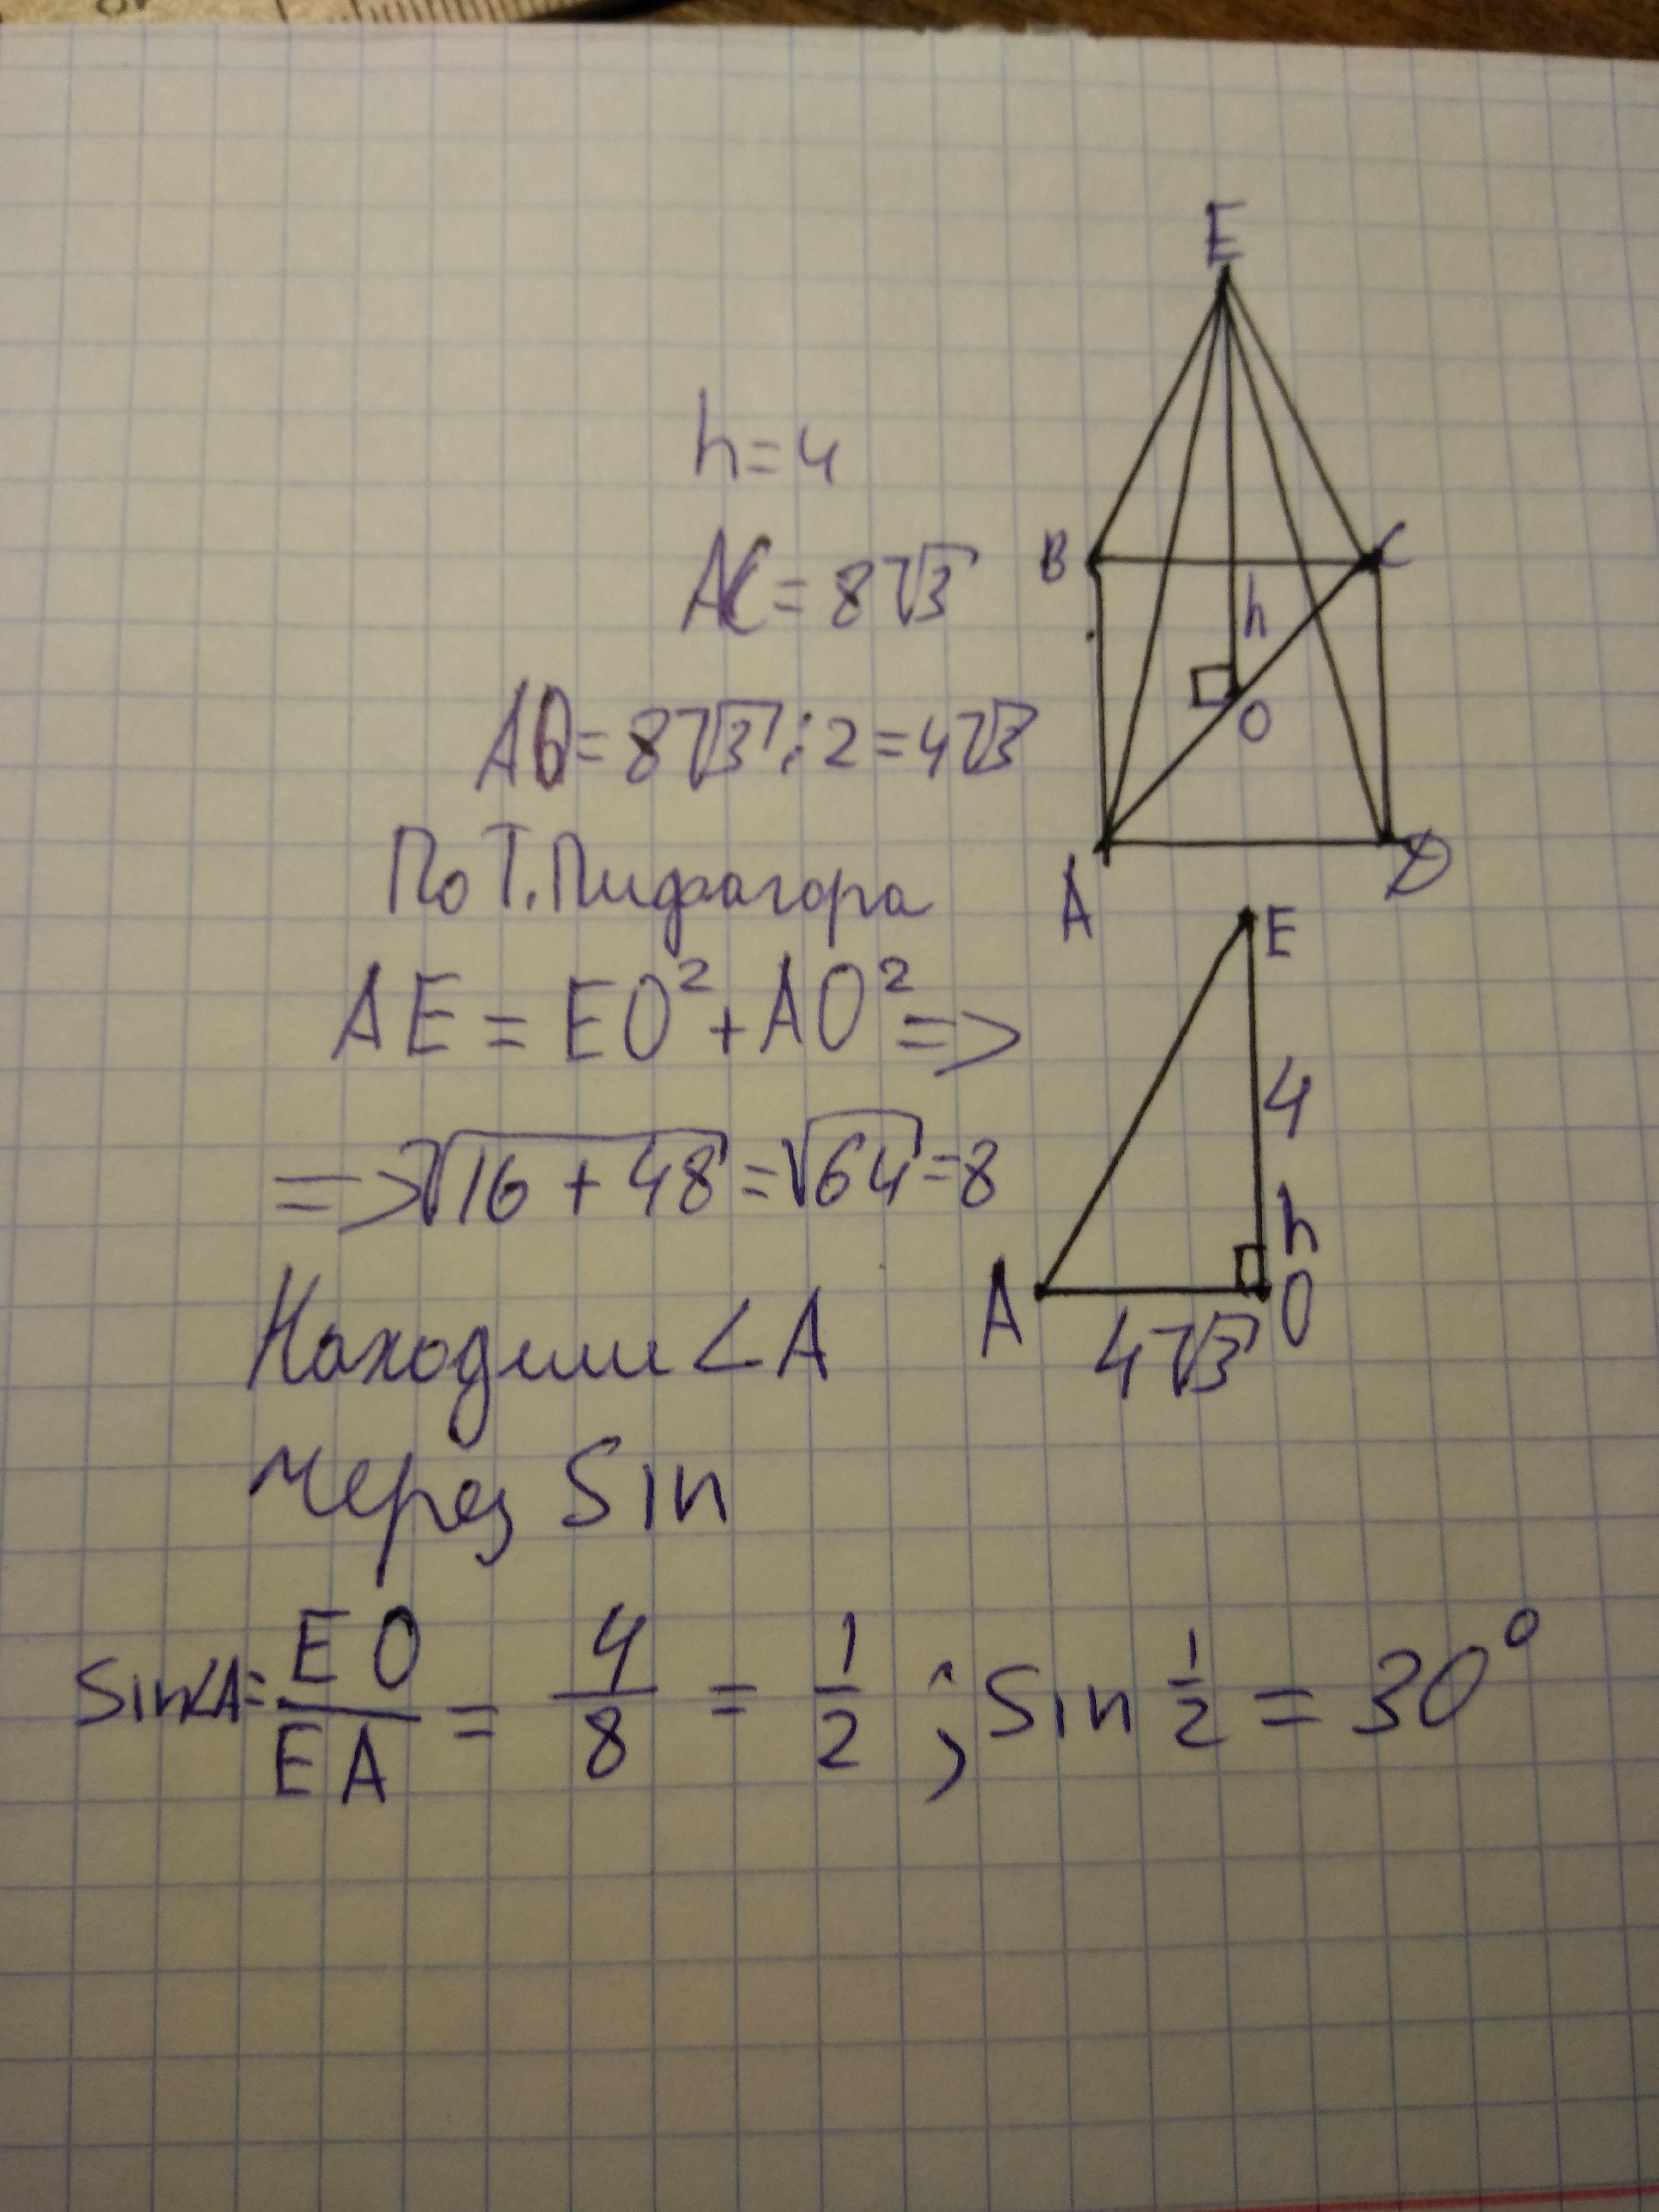 E
h=4
B
C
AC=8√3
h
O
AO=8√3:2=4√3
По Т.Пифагора
A
D
E
AE=EO²+AO²=>
4
=>√16+48=√64=8
h
A
O
4√3
Находим <A
через Sin
Sin<A=EO/EA=4/8=1/2; Sin 1/2=30°